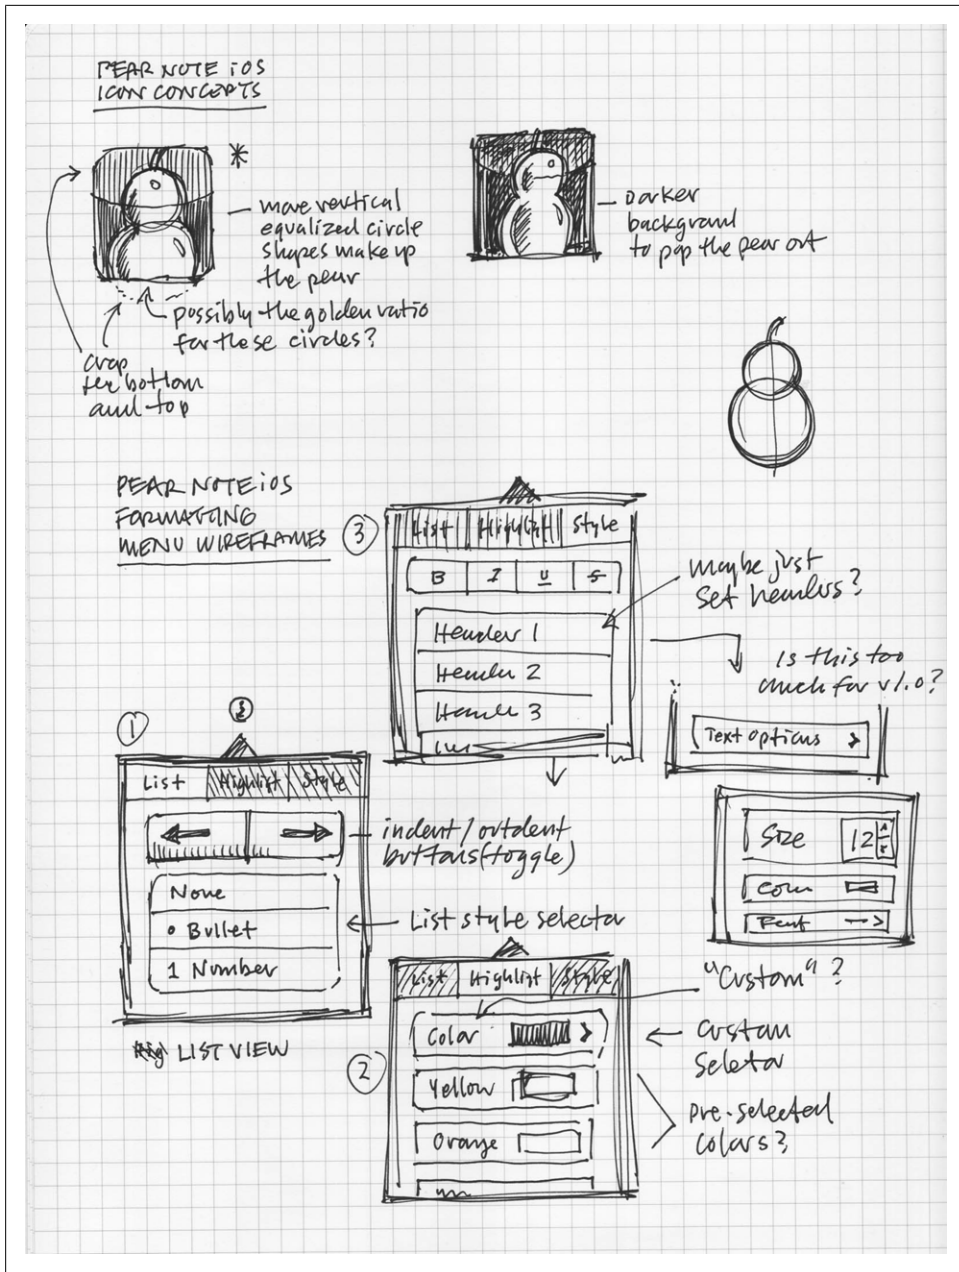 PEAR NOTE iOS
ICON CONCEPTS
*
more vertical
equalized circle
shapes make up
the pear
possibly the golden ratio
for these circles?
crop
bottom
and top
Darker
background
to pop the pear out
PEAR NOTE iOS
FORMATTING
MENU WIREFRAMES
3
List Highlight Style
B I U S
Header 1
Header 2
Header 3
maybe just
set headers?
Is this too
much for v1.0?
Text options >
Size 12
Color
Font
1
List Highlight Style
indent/outdent
buttons (toggle)
None
• Bullet
1 Number
List style selector
LIST VIEW
2
List Highlight Style
Color >
Yellow
Orange
"Custom"?
Custom
Selector
Pre-selected
colors?